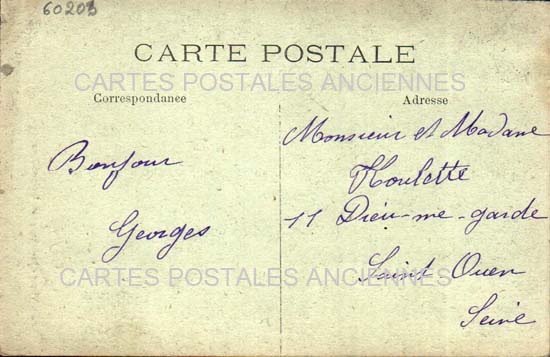 60203
CARTE POSTALE
CARTES POSTALES ANCIENNES
Correspondance
Adresse
Bonjour
Georges
Monsieur et Madame
Houlette
11 Dieu-me-garde
Saint Ouen
Seine
CARTES POSTALES ANCIENNES